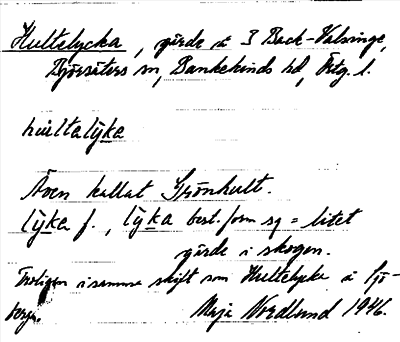 Hultelycka, gärde å 3 Back-Valsinge,
Björsäters sn, Bankekinds hd, Östg. l.
hùltalỳka
Även kallat Sjönhult.
lỳka f., lỳka best. form sg = litet
gärde i skogen.
Troligen i samma skift som Hultelycke å Sjö-
berga. Maja Nordlund 1946.